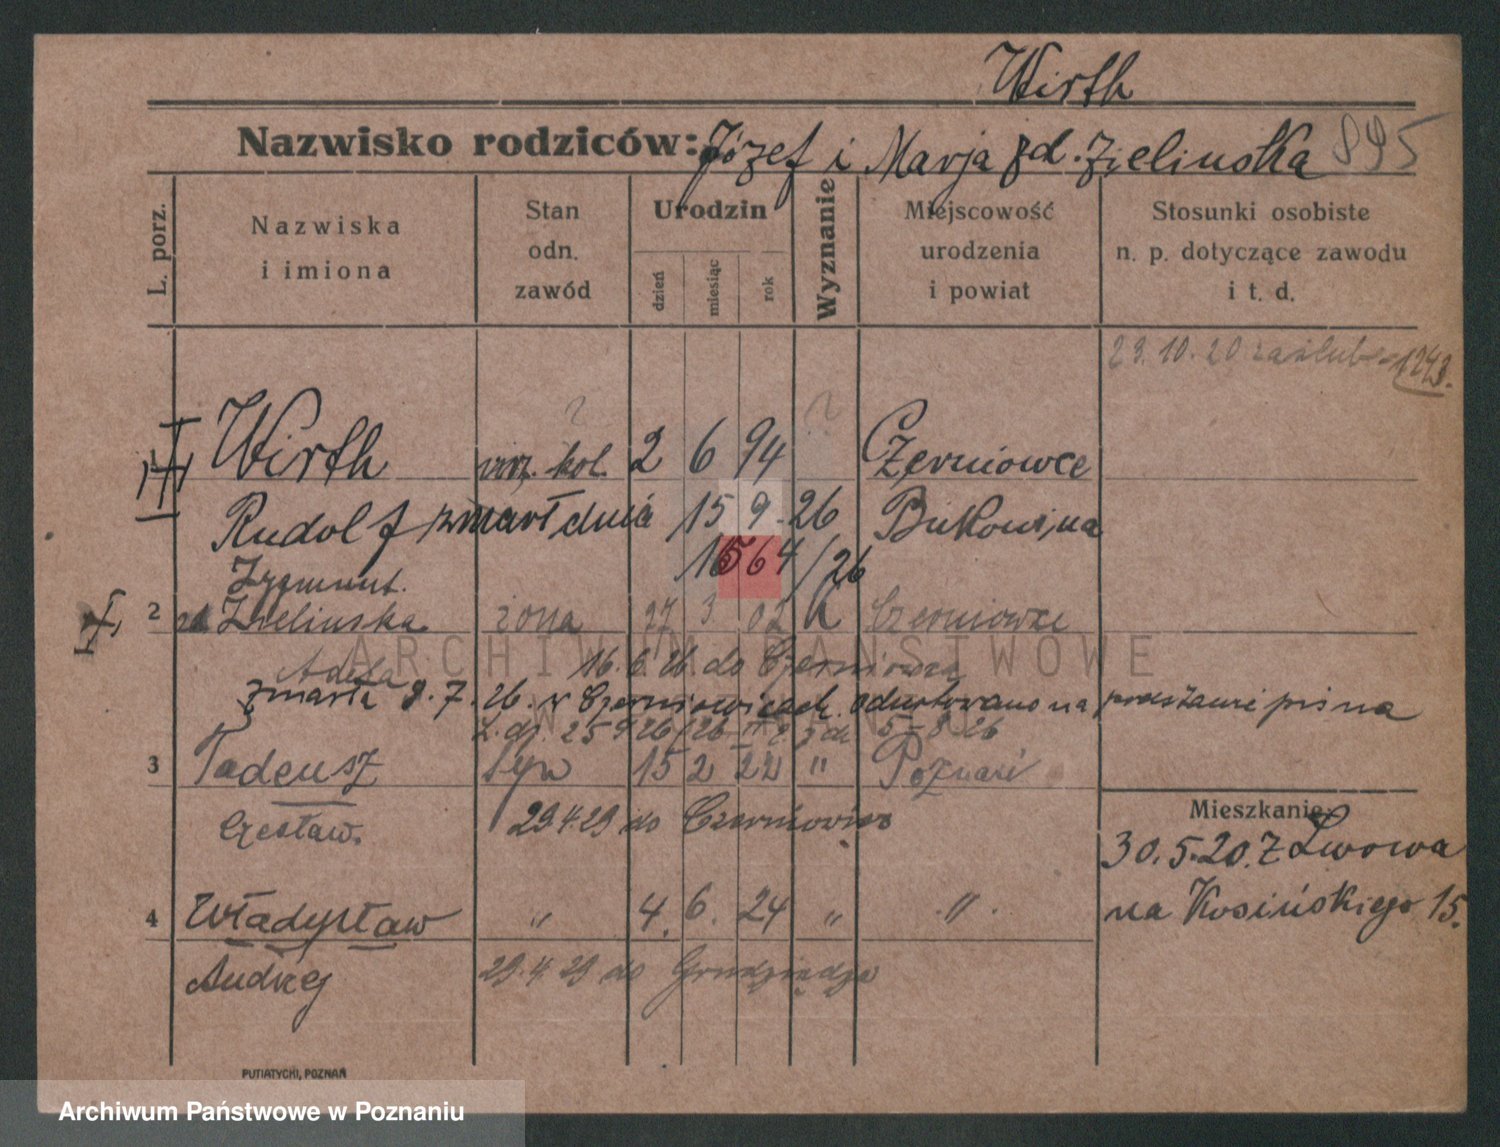 Wirth
Nazwisko rodziców: Józef i Marja zd. Zielinska 895
L. porz.
Nazwiska
i imiona
Stan
odn.
zawód
Urodzin
dzień
miesiąc
rok
Wyznanie
Miejscowość
urodzenia
i powiat
Stosunki osobiste
n. p. dotyczące zawodu
i t. d.
23.10.20 zaślub. 1243.
? ?
1 Wirth urz. kol. 2 6 94 Czerniowce
Rudolf zmarł dnia 15 9. 26 Bukowina
1564/26
Zygmunt.
2 zd. Zielinska żona 27 3 02 k Czerniowce
ARCHIWUM PAŃSTWOWE
Adela 16.6.26 do Czerniowca
W POZNANIU
zmarła 9.7.26. w Czerniowicach. odnotowano na podstawie pisma
L. dz. 259 26/26 II 2 z dn 5-8 26
3 Tadeusz syn 15 2 22 " Poznań
Czesław. 29.4.29 do Czerniowiec
Mieszkanie
30.5.20. z Lwowa
na Kosińskiego 15.
4 Władysław " 4. 6. 24 " "
Andrzej 29.4.29 do Grudziądza
PUTIATYCKI, POZNAŃ
Archiwum Państwowe w Poznaniu